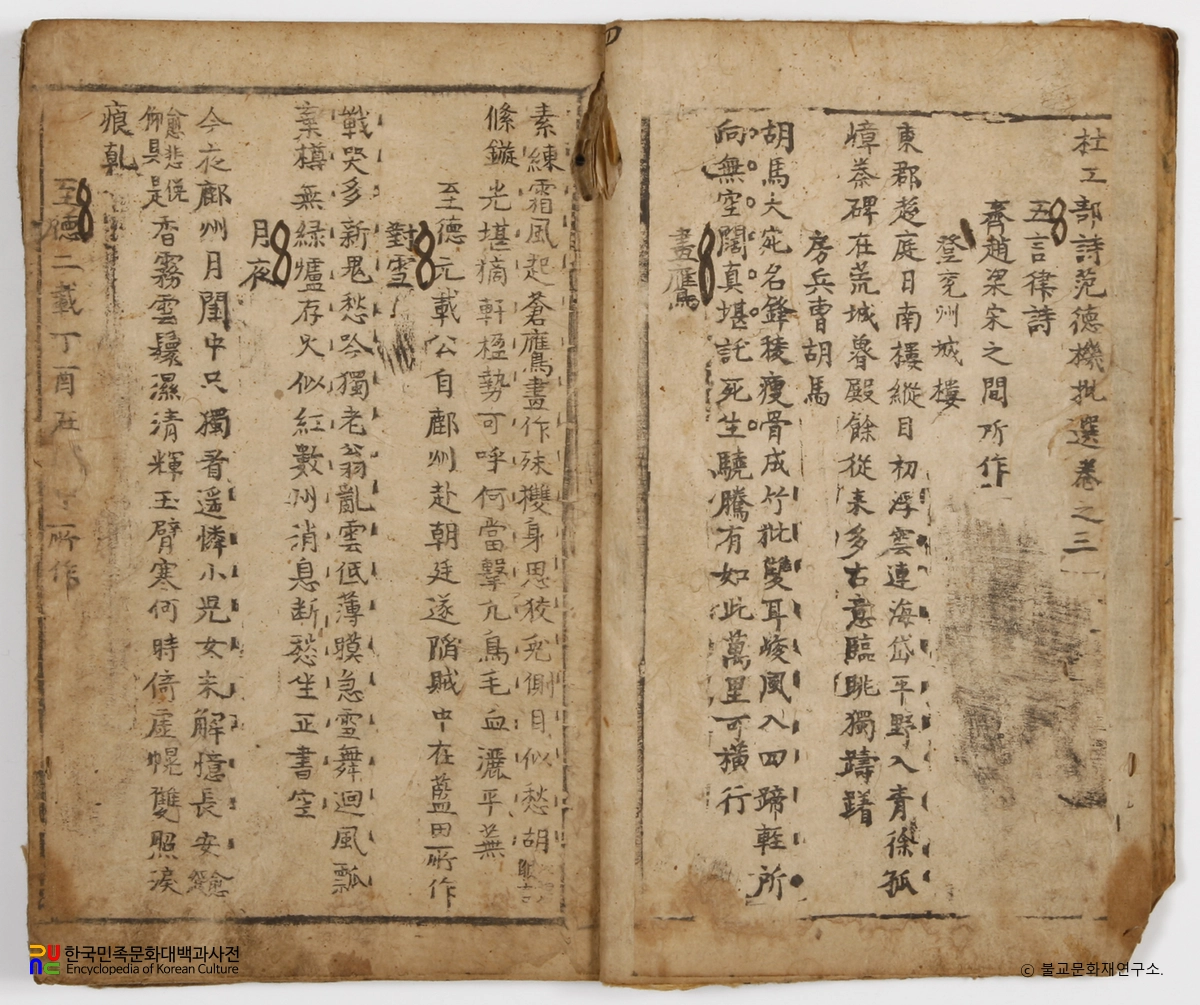 杜工部詩范德機批選卷之三
五言律詩
齊趙梁宋之間所作
登兗州城樓
東郡趍庭日南樓縱目初浮雲連海岱平野入青徐孤
嶂秦碑在荒城魯殿餘從来多古意臨眺獨躊躇
房兵曹胡馬
胡馬大宛名鋒稜瘦骨成竹批雙耳峻風入四蹄軽所
向無空闊真堪託死生驍騰有如此萬里可橫行
畫鷹
素練霜風起蒼鷹畫作殊㩳身思狡兎側目似愁胡
絛鏇光堪摘軒楹勢可呼何當擊凢鳥毛血灑平蕪
至德元載公自鄜州赴朝廷遂陷賊中在藍田所作
對雪
戰哭多新鬼愁吟獨老翁亂雲低薄暯急雪舞迴風瓢
棄樽無緑爐存火似紅數州消息断愁坐正書空
月夜
今夜鄜州月閨中只獨看遥憐小児女未解憶長安愈
愈悲悅
是香霧雲鬟濕清輝玉臂寒何時倚虛幌雙照淚
痕乹
至德二載丁酉在 所作
한국민족문화대백과사전
Encyclopedia of Korean Culture
© 불교문화재연구소.